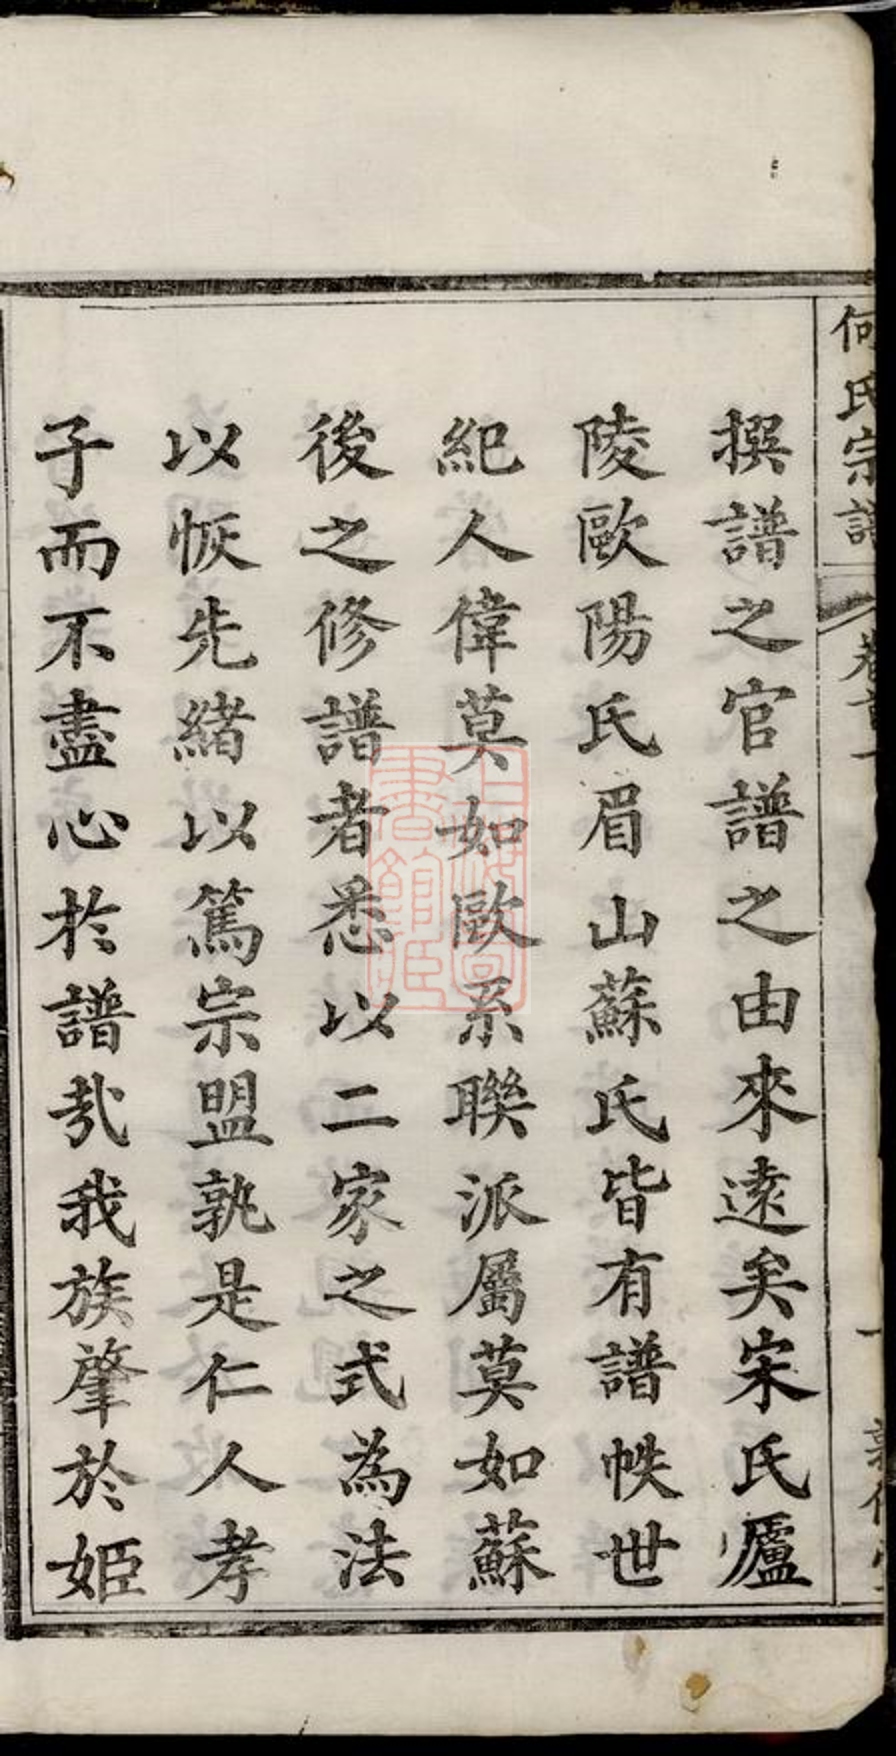 何氏宗譜 卷首 一
撰譜之官譜之由來遠矣宋氏廬
陵歐陽氏眉山蘇氏皆有譜帙世
紀人偉莫如歐系聯派屬莫如蘇
後之修譜者悉以二家之式為法
以恢先緒以篤宗盟孰是仁人孝
子而不盡心於譜哉我族肇於姬